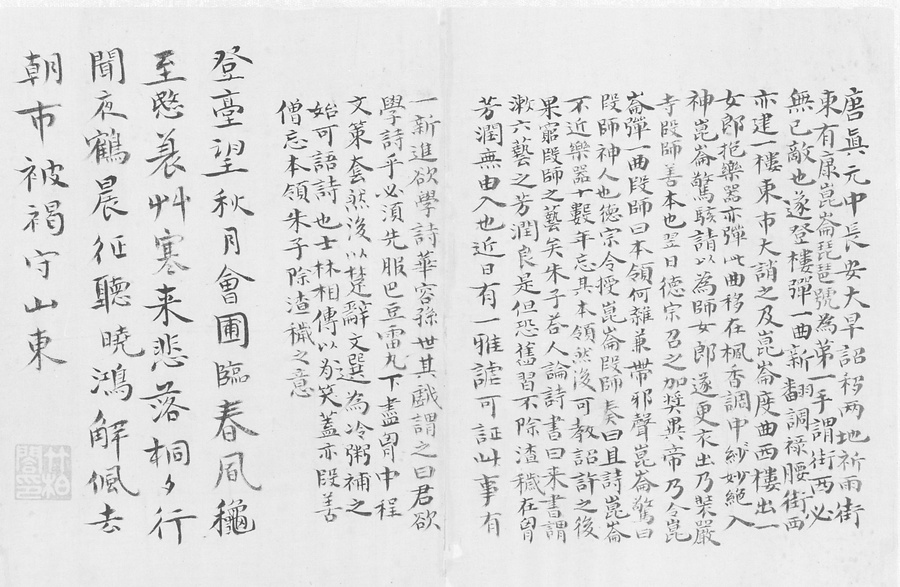 唐真元中長安大旱詔移兩地祈雨街
東有康崑崙琵琶號為第一手謂街西必
無已敵也遂登樓彈一曲新翻調祿腰街西
亦建一樓東市大誚之及崑崙度曲西樓出一
女郎抱樂器亦彈此曲移在楓香調中妙妙絕入
神崑崙驚駭請以為師女郎遂更衣出乃裝嚴
寺段師善本也翌日德宗召之加奨異帝乃令崑
崙彈一曲段師曰本領何雜兼帶邪聲崑崙驚曰
段師神人也德宗令授崑崙段師奏曰且請崑崙
不近樂器十數年忘其本領然後可教詔許之後
果窮段師之藝矣朱子荅人論詩書曰来書謂
漱六藝之芳潤良是但恐舊習不除渣穢在胷
芳潤無由入也近日有一雅謔可証此事有
一新進欲學詩華容孫世其戲謂之曰君欲
學詩乎必須先服巴豆雷丸下盡胷中程
文策套然後以楚辭文選為冷粥補之
始可語詩也士林相傳以為笑蓋亦段善
僧忘本領朱子除渣穢之意
登臺望秋月會圃臨春風龝
至愍衰艸寒来悲落桐夕行
聞夜鶴晨征聽曉鴻解佩去
朝市被褐守山東